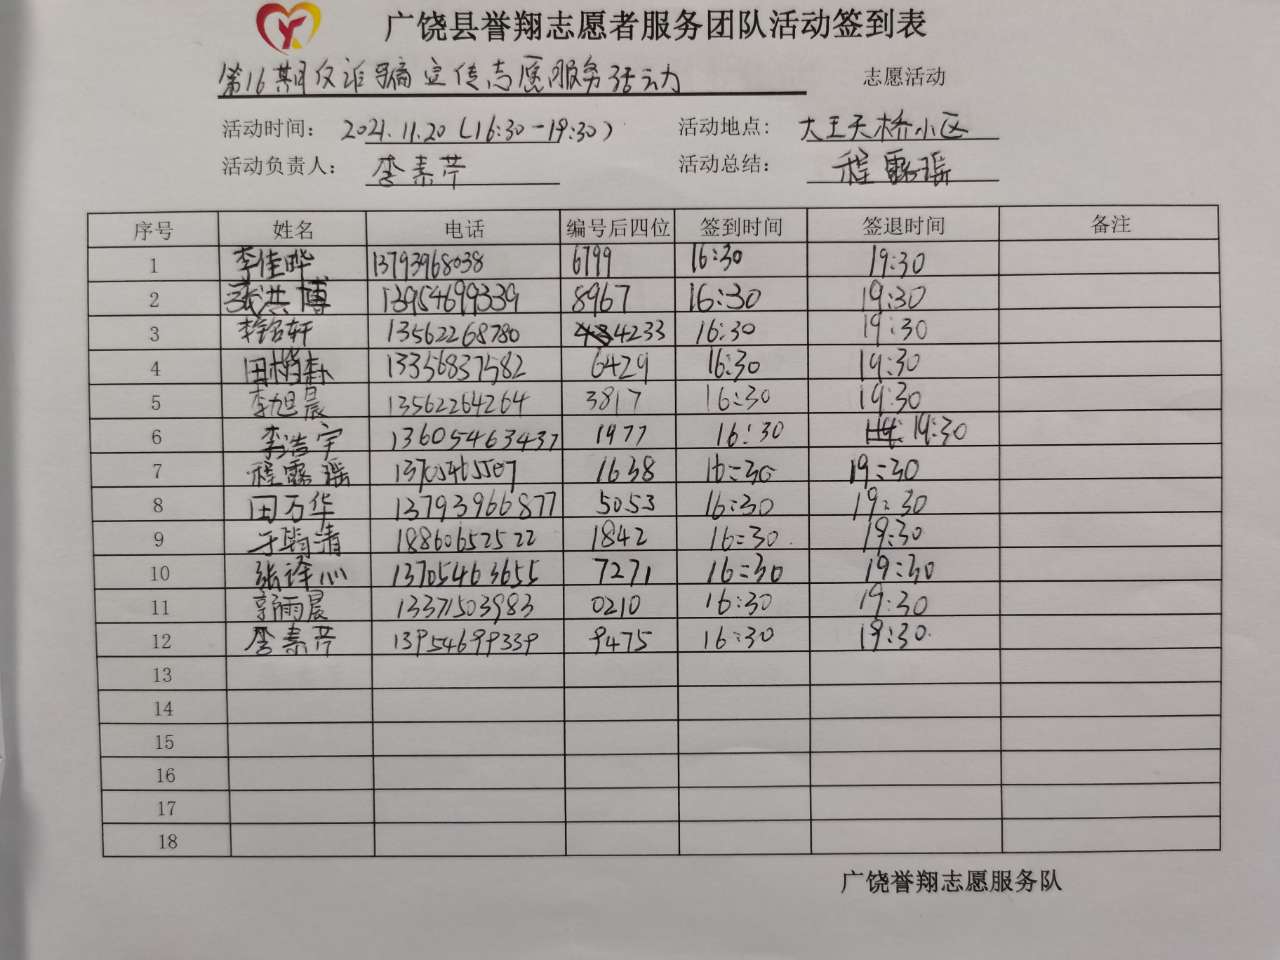 广饶县誉翔志愿者服务团队活动签到表
第16期反诈骗宣传志愿服务活动 志愿活动
活动时间： 2021.11.20（16:30-19:30） 活动地点： 大王天桥小区
活动负责人： 李素芹 活动总结： 程露瑶
序号 姓名 电话 编号后四位 签到时间 签退时间 备注
1 李佳晔 13793968038 6799 16:30 19:30
2 张洪博 13954699339 8967 16:30 19:30
3 李铭轩 13562268780 4233 16:30 19:30
4 田 13356837582 6429 16:30 19:30
5 李旭晨 13562264264 3817 16:30 19:30
6 李浩宇 13605463437 1977 16:30 19:30
7 程露瑶 13705465507 1638 16:30 19:30
8 田万华 13793966877 5053 16:30 19:30
9 于清 18860652522 1842 16:30 19:30
10 张译心 13705463655 7271 16:30 19:30
11 郭雨晨 13371503983 0210 16:30 19:30
12 李素芹 13954699339 9475 16:30 19:30
13
14
15
16
17
18
广饶誉翔志愿服务队